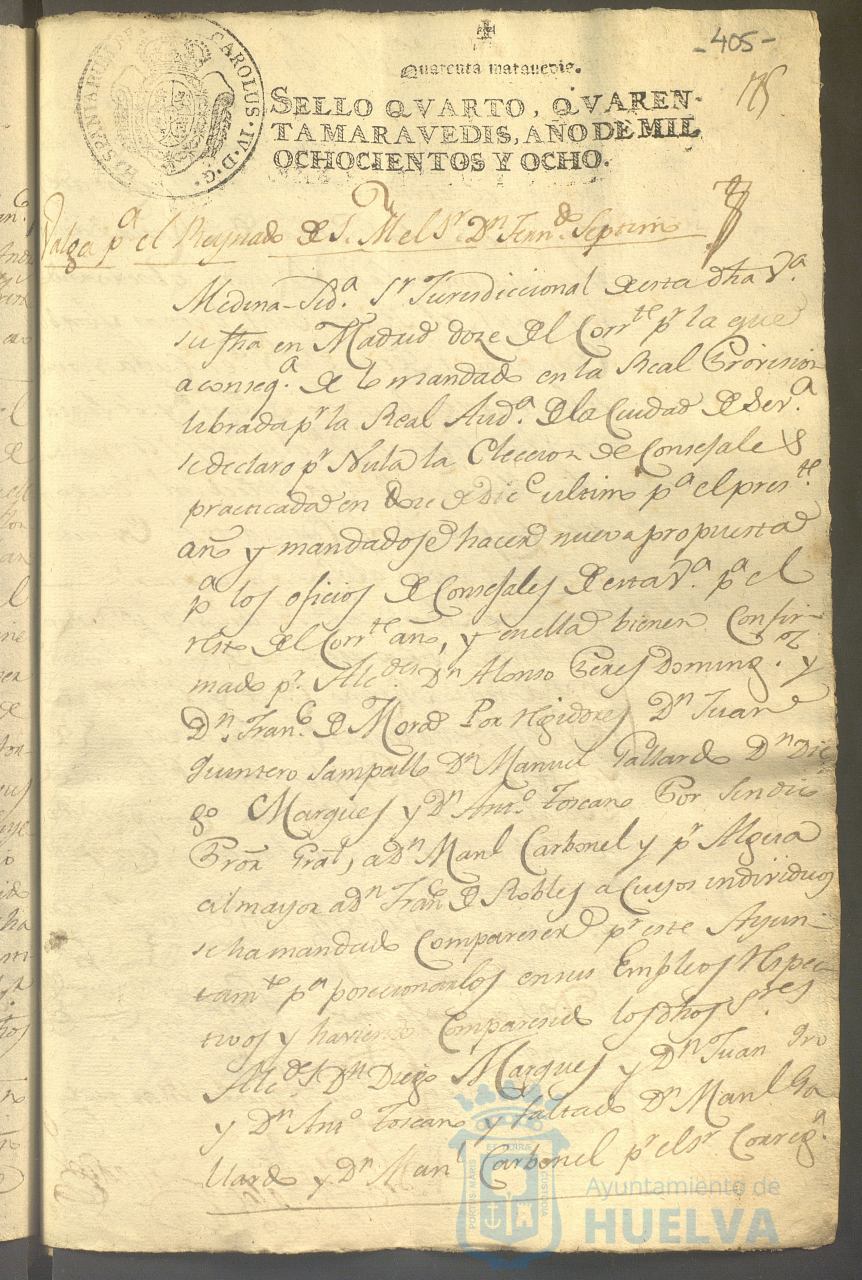 -405-
175
HISPANIARUM REX
CAROLUS·IV·D·G·
Quarenta maravedis.
SELLO QVARTO, QVAREN-
TA MARAVEDIS, AÑO DE MIL
OCHOCIENTOS Y OCHO.
Valga pª el Reynado de S. M el Sr. Dn Fernd. Septimo
Medina-Sidª. Sr Jurisdiccional de esta dha Vª.
su fha en Madrid doze del Corrte pr la que
a conseqª. de lo mandado en la Real Provision
librada pr la Real Audª. de la Ciudad de Sevª
se declaro pr Nula la Eleccion de Consejales
practicada en doze de Dice ultimo pª el preste
año y mandadose hacer nueva propuesta
pª los oficios de Consejales de esta Vª. pª el
resto del Corrte año, y en ella bienen Confir-
mado pr. Alcdes Dn Alonso Peres Domingz. y
Dn. Franco. de Mora Por regidores Dn Juan
Quintero Sampallo Dn Manuel Gallardo Dn Die
go Marques y Dn Anto. Toscano Por Sindico
Pror Gral, a Dn Manl Carbonel y pr Algua
cil mayor a Dn Franco de Robles a cuyos individuos
se ha mandado Compareser pr este Ayun-
tamto pª posecionarlos en sus Empleos respec-
tivos y haviendo Comparesido los dhos Sres
Alcdes Dn Diego Marques y Dn Juan Qro
y Dn Anto. Toscano y faltado Dn Manl Ga
llardo y Dn Manl Carbonel pr el Sr Corregr
PORTUS MARIS
ET TERRÆ
CUSTODIA
Ayuntamiento de
HUELVA